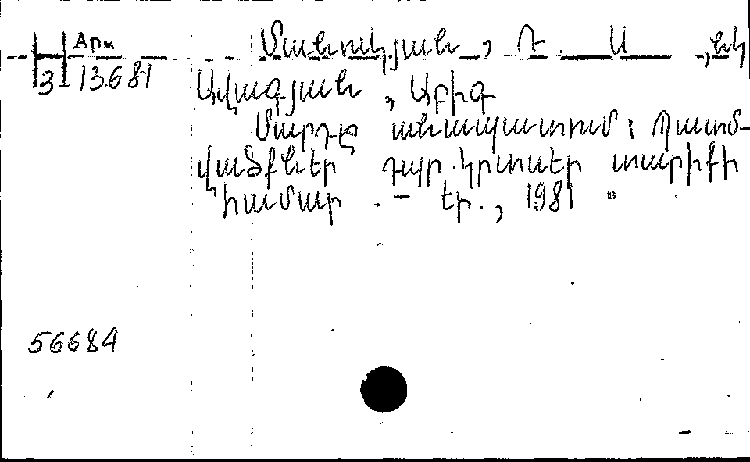 Արև
3 13681
Մանուկյան, Ռ. Ա, եվ
Ավագյան, Աբիգ
Մարդը անապատում: Պատմ-
վածքներ դպր. կրտսեր տարիքի
համար. – Եր., 1981
56684